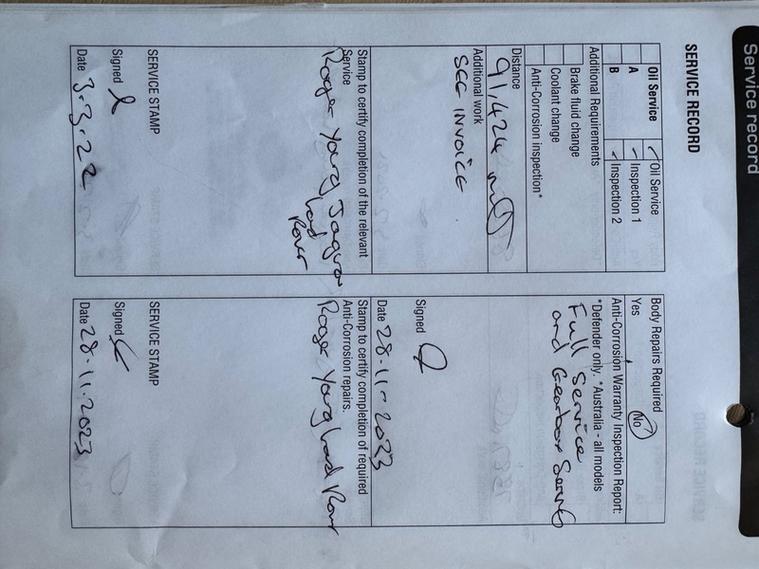 Service record
SERVICE RECORD
Oil Service
Oil Service
A
Inspection 1
B
Inspection 2
Additional Requirements
Brake fluid change
Coolant change
Anti-Corrosion inspection*
Distance
91,424
Additional work
SEE INVOICE
Stamp to certify completion of the relevant
Service
Roger Young Jaguar
Land
Rover
SERVICE STAMP
Signed
Date 3.3.22
Body Repairs Required
Yes
No
Anti-Corrosion Warranty Inspection Report:
*Defender only. *Australia - all models
Full Service
and Gearbox Service
Signed
Date 28-11-2023
Stamp to certify completion of required
Anti-Corrosion repairs.
Roger Young Land Rover
SERVICE STAMP
Signed
Date 28.11.2023